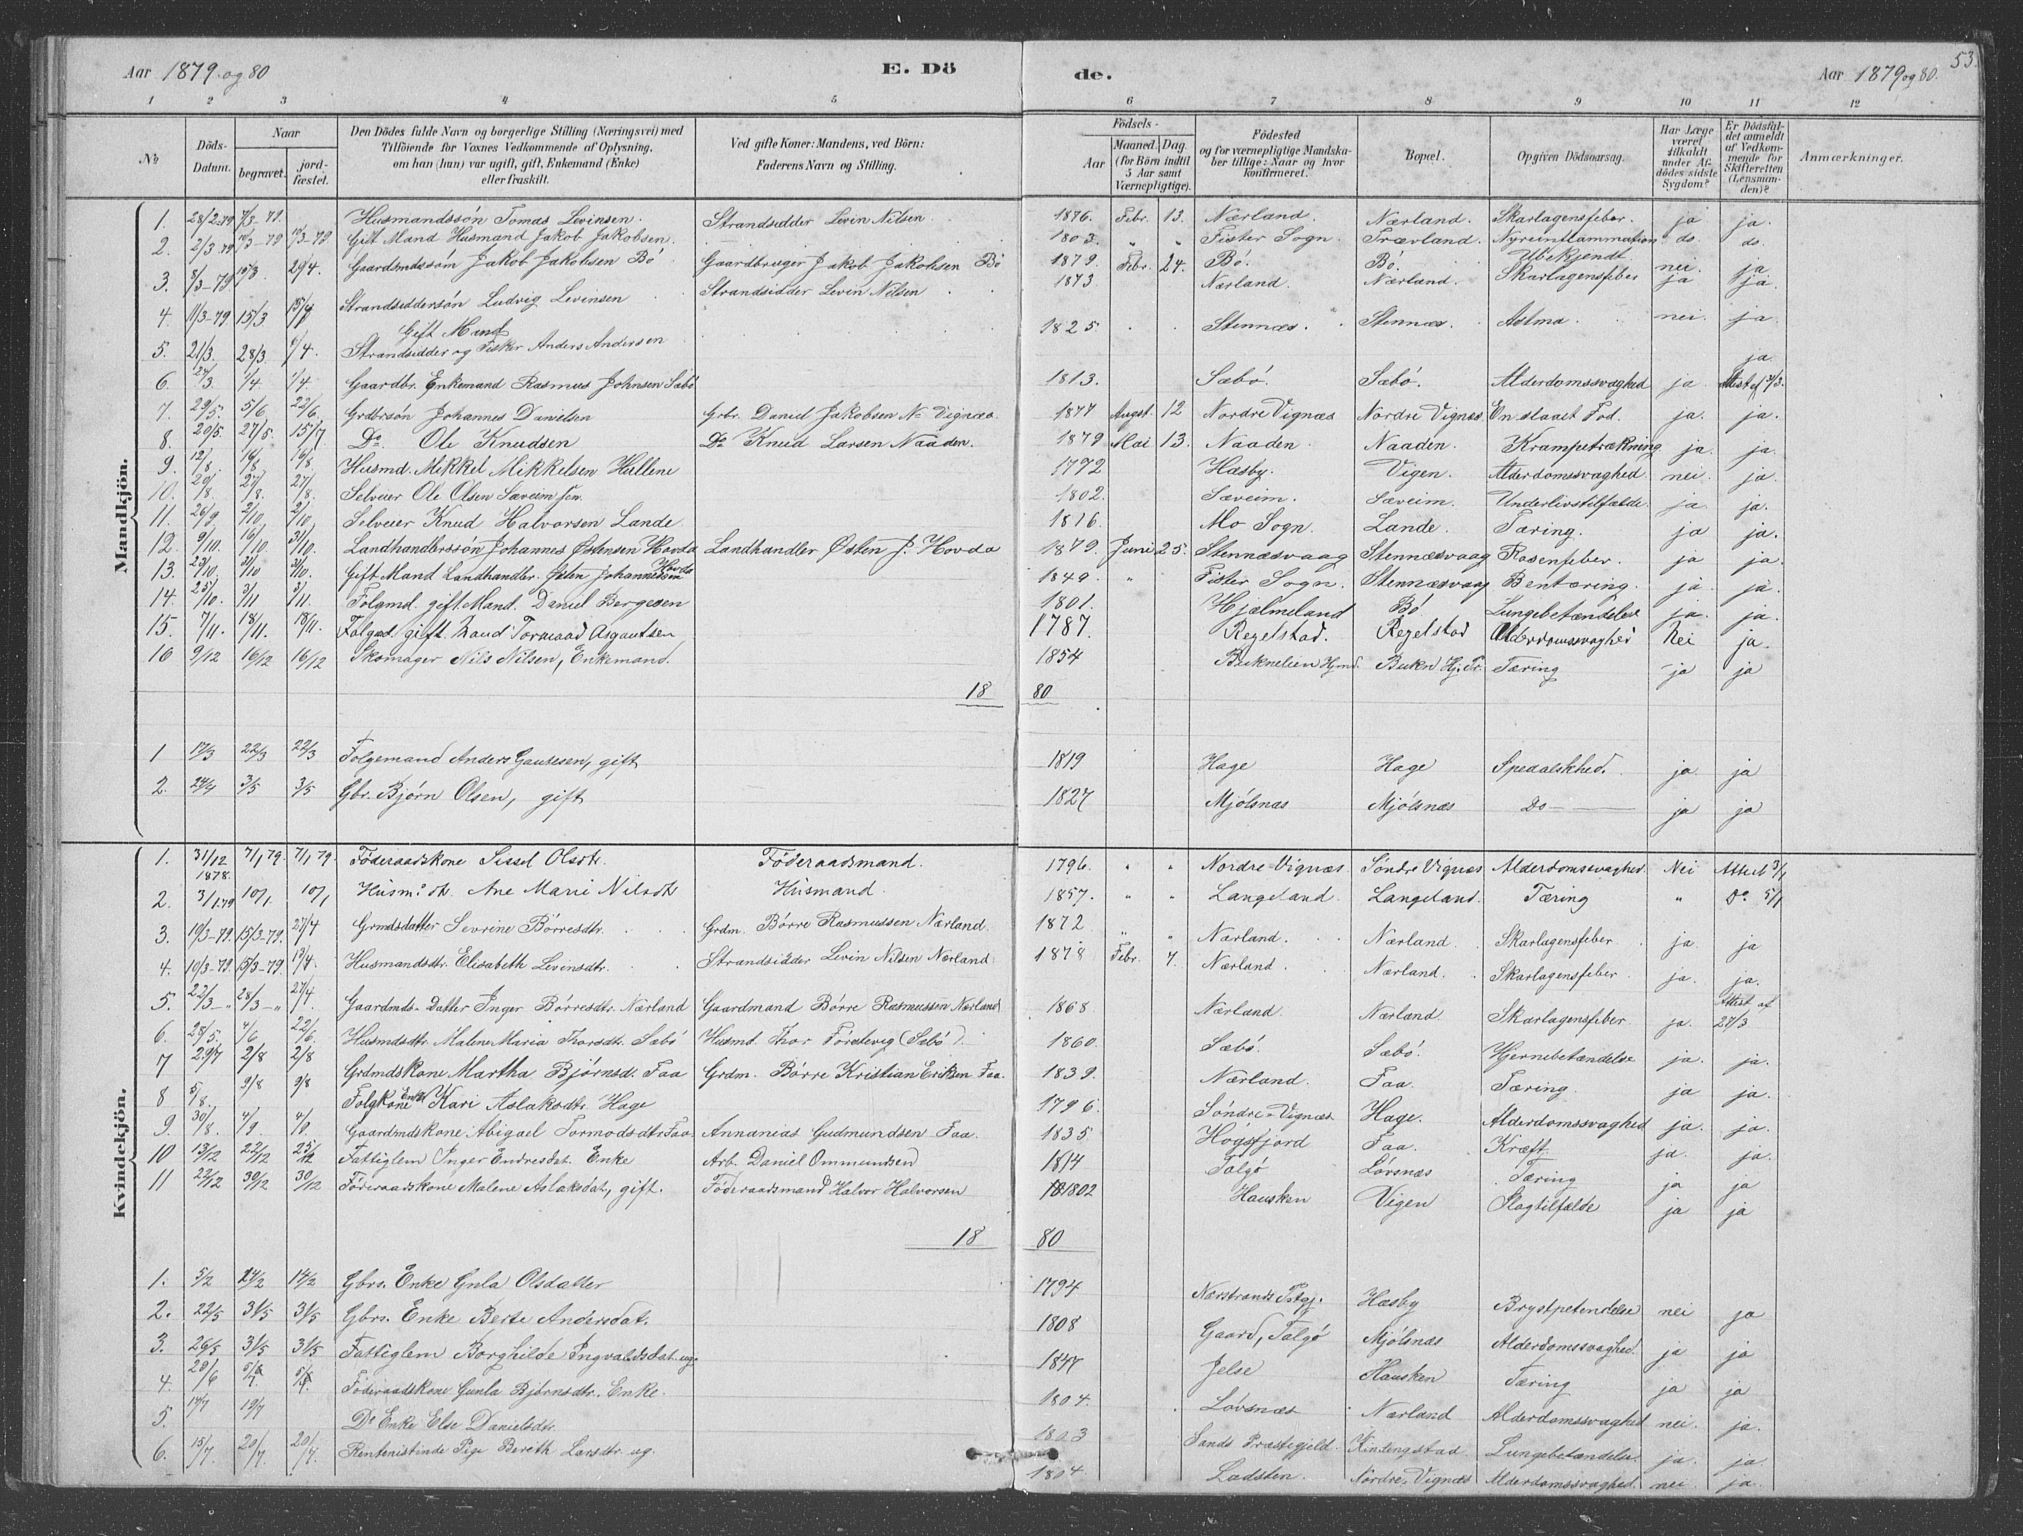 Aar 1879 og 80 E. Dö de. Aar 1879 og 80. 53.
1 2 3 4 5 6 7 8 9 10 11 12
No Döds-Datum. Naar begravet. jord-fæstet. Den Dödes fulde Navn og borgerlige Stilling (Næringsvei) med Tilföiende for Voxnes Vedkommende af Oplysning, om han (hun) var ugift, gift, Enkemand (Enke) eller fraskilt. Ved gifte Koner: Mandens, ved Börn: Faderens Navn og Stilling. Födsels- Aar Maaned. Dag. (for Börn indtil 5 Aar samt Værnepligtige). Födested og for værnepligtige Mandska-ber tillige: Naar og hvor konfirmeret. Bopæl. Opgiven Dödsaarsag. Har Læge været tilkaldt under Af-dödes sidste Sygdom? Er Dödsfal-det anmeldt af Vedkom-mende for Skifteretten (Lensman-den)? Anmærkninger.
Mandkjön.
1. 28/2-79 7/3-79. Husmandssön Tomas Levinsen. Strandsidder Levin Nilsen. 1876. Febr. 13. Nærland. Nærland. Skarlagensfeber. ja ja.
2. 2/3-79 10/3-79 10/3-79 Gift Mand Husmand Jakob Jakobsen. 1803. " " Fister Sogn. Trævland. Nyreinflammation ds. ds.
3. 8/3-79 15/3. 29/4. Gaardmdssön Jakob Jakobsen Bö Gaardbruger Jakob Jakobsen Bö 1879. Febr. 24. Bö. Bö. Ubekjendt nei. ja
4. 11/3-79 15/3 Strandsiddersön Ludvig Levinsen Strandsidder Levin Nilsen 1873. Nærland. Nærland. Skarlagensfeber ja ja.
5. 21/3. 28/3 /4. Gift Mand Strandsidder og Fisker Anders Andersen 1825. Stennæs. Stennæs. Astma nei. ja.
6. 27/3. 1/4 1/4. Gaardbr. Enkemand Rasmus Johnsen Sæbö 1813. Sæbö. Sæbö. Alderdomssvaghed ja. ja. Attest af 31/3.
7. 29/5. 5/6 22/6. Grdbrsön Johannes Danielsen Grbr. Daniel Jakobsen N. Vignæs 1877 Augst. 12 Nordre Vignæs Nordre Vignæs En slaaet Fod. ja. ja.
8. 20/5. 27/5 15/7 Do Ole Knudsen Do Knud Larsen Naaden. 1879 Mai 13. Naaden. Naaden. Krampetrækning ja. ja.
9. 12/8. 16/8 16/8. Husmd. Mikkel Mikkelsen Hullene 1792 Hæsby. Vigen. Alderdomssvaghed nei. ja.
10. 20/8. 27/8. 27/8. Selveier Ole Olsen Sæveim sen. 1802. Sæveim. Sæveim. Underlivstilfælde. ja ja.
11. 26/9 2/10. 2/10. Selveier Knud Halvorsen Lande. 1816. Mo Sogn. Lande. Tæring. ja ja.
12. 9/10. 16/10 31/10. Landhandlerssön Johannes Østensen Hovda Landhandler Østen J. Hovda 1879. Juni 25. Stennæsvaag Stennæsvaag Rosenfeber. ja ja.
13. 23/10. 31/10 31/10. Gift Mand Landhandler. Østen Johannessen Hovda 1849. " Fister Sogn. Stennæsvaag Bentæring. ja ja.
14. 25/10. 3/11 3/11. Folgmd. gift Mand. Daniel Bergesen 1801. Hjelmeland Bö Lungebetændelse ja. ja.
15. 7/11. 18/11. 18/11. Folgmd. gift Mand Tormod Asgautsen 1787. Regelstad. Regelstad Alderdomssvaghed Nei ja.
16 9/12 16/12 16/12 Skomager Nils Nilsen, Enkemand. 1854 Buknelien Hjmd. Bukn Hj. Tæring ja ja
18 80
1 17/3 22/3 22/3 Folgemand Anders Gautesen, gift 1819 Hage Hage Spedalskhed. ja ja
2. 24/4 3/5 3/5 Gbr. Björn Olsen, gift 1827 Mjölsnæs Mjölsnæs Do ja ja
Kvindekjön.
1. 31/12 1878. 7/1 79. 7/1 79. Föderaadskone Sissel Olsdtr. Föderaadsmand. 1796. " " Nordre-Vignæs. Söndre Vignæs Alderdomssvaghed Nei Attest 3/1
2. 3/1.79 10/1 10/1 Husm: dtr. Ane Marie Nilsdtr Husmand. 1857. " " Langeland. Langeland. Tæring " Do 5/1
3. 10/3-79. 15/3-79. 27/4 Grmdsdatter Severine Börresdtr. Grdm. Börre Rasmussen Nærland. 1872 " " Nærland. Nærland. Skarlagensfeber ja ja
4. 10/3-79. 15/3-79 13/4 Husmandsdtr. Elisabeth Levinsdtr. Strandsidder Levin Nilsen Nærland 1878 Febr. 7. Nærland. Nærland. Skarlagensfeber ja. ja.
5. 22/3-" 28/3-" 27/4. Gaardmds-Datter Inger Börresdtr. Nærland Gaardmand Börre Rasmussen Nærland 1868 Nærland. Nærland. Skarlagensfeber ja. Attest af 27/3
6. 28/5. 4/6 22/6. Husmdsdtr Malene Maria Thorsdtr. Sæbö Husmd. Thor Förelevig (Sæbö). 1860. Sæbö. Sæbö. Hjernebetændelse ja. ja.
7 29/7 2/8 2/8 Grdmdskone Martha Björnsd. Faa Grdm. Börre Kristian Eriksen Faa. 1839. Nærland. Faa. Tæring. ja ja.
8 5/8. 9/8 9/8 Folgkone Enke Kari Aslaksdtr. Hage 1796. Söndre-Vignæs Hage. Alderdomssvaghed ja. ja.
9. 30/8. 4/9 4/9. Gaardmdskone Abigael Tormodsdtr. Faa. Annanias Gudmundsen Faa. 1835. Högsfjord Faa. Kræft ja. ja.
10 13/12 22/12 Fattiglem Inger Endresdat. Enke Arb. Daniel Ommundsen 1814 Talgö Lövsnæs Tæring ja ja
11 22/12 30/12 30/12 Föderaadskone Malene Aslaksdat, gift. Föderaadsmand Halvor Halvorsen 1802 Hausken Vigen Slagtilfælde ja ja
18 80
1. 5/2 14/2 14/2 Gbrs. Enke Gula Olsdatter 1794 Nærstrands Hæsby Brystbetendelse nei ja
2. 22/5 31/5 31/5 Gbrs. Enke Berte Andersdat. 1808 Gaard, Talgö Mjölsnæs Alderdomssvaghed ja ja
3. 26/5 31/5 31/5 Fattiglem Borghilde Ingvaldsdat. ug. 1847 Jelse Hausken Tæring ja ja
4. 28/6 5/7 5/7. Föderaadskone Gunla Björnsdtr. Enke. 1804. Lövsnæs Nærland Alderdomssvaghed nei. ja.
5. 14/7 19/7 Do Enke Else Danielsdtr. 1803 Sands Præstegjeld Kindingstad Lungebetændelse ja. ja.
6. 15/7. 20/7 20/7. Rentenistinde Pige Bereth Larsdtr ug. 1804. Ladsten. Nordre-Vignæs Alderdomssvaghed. nei ja.